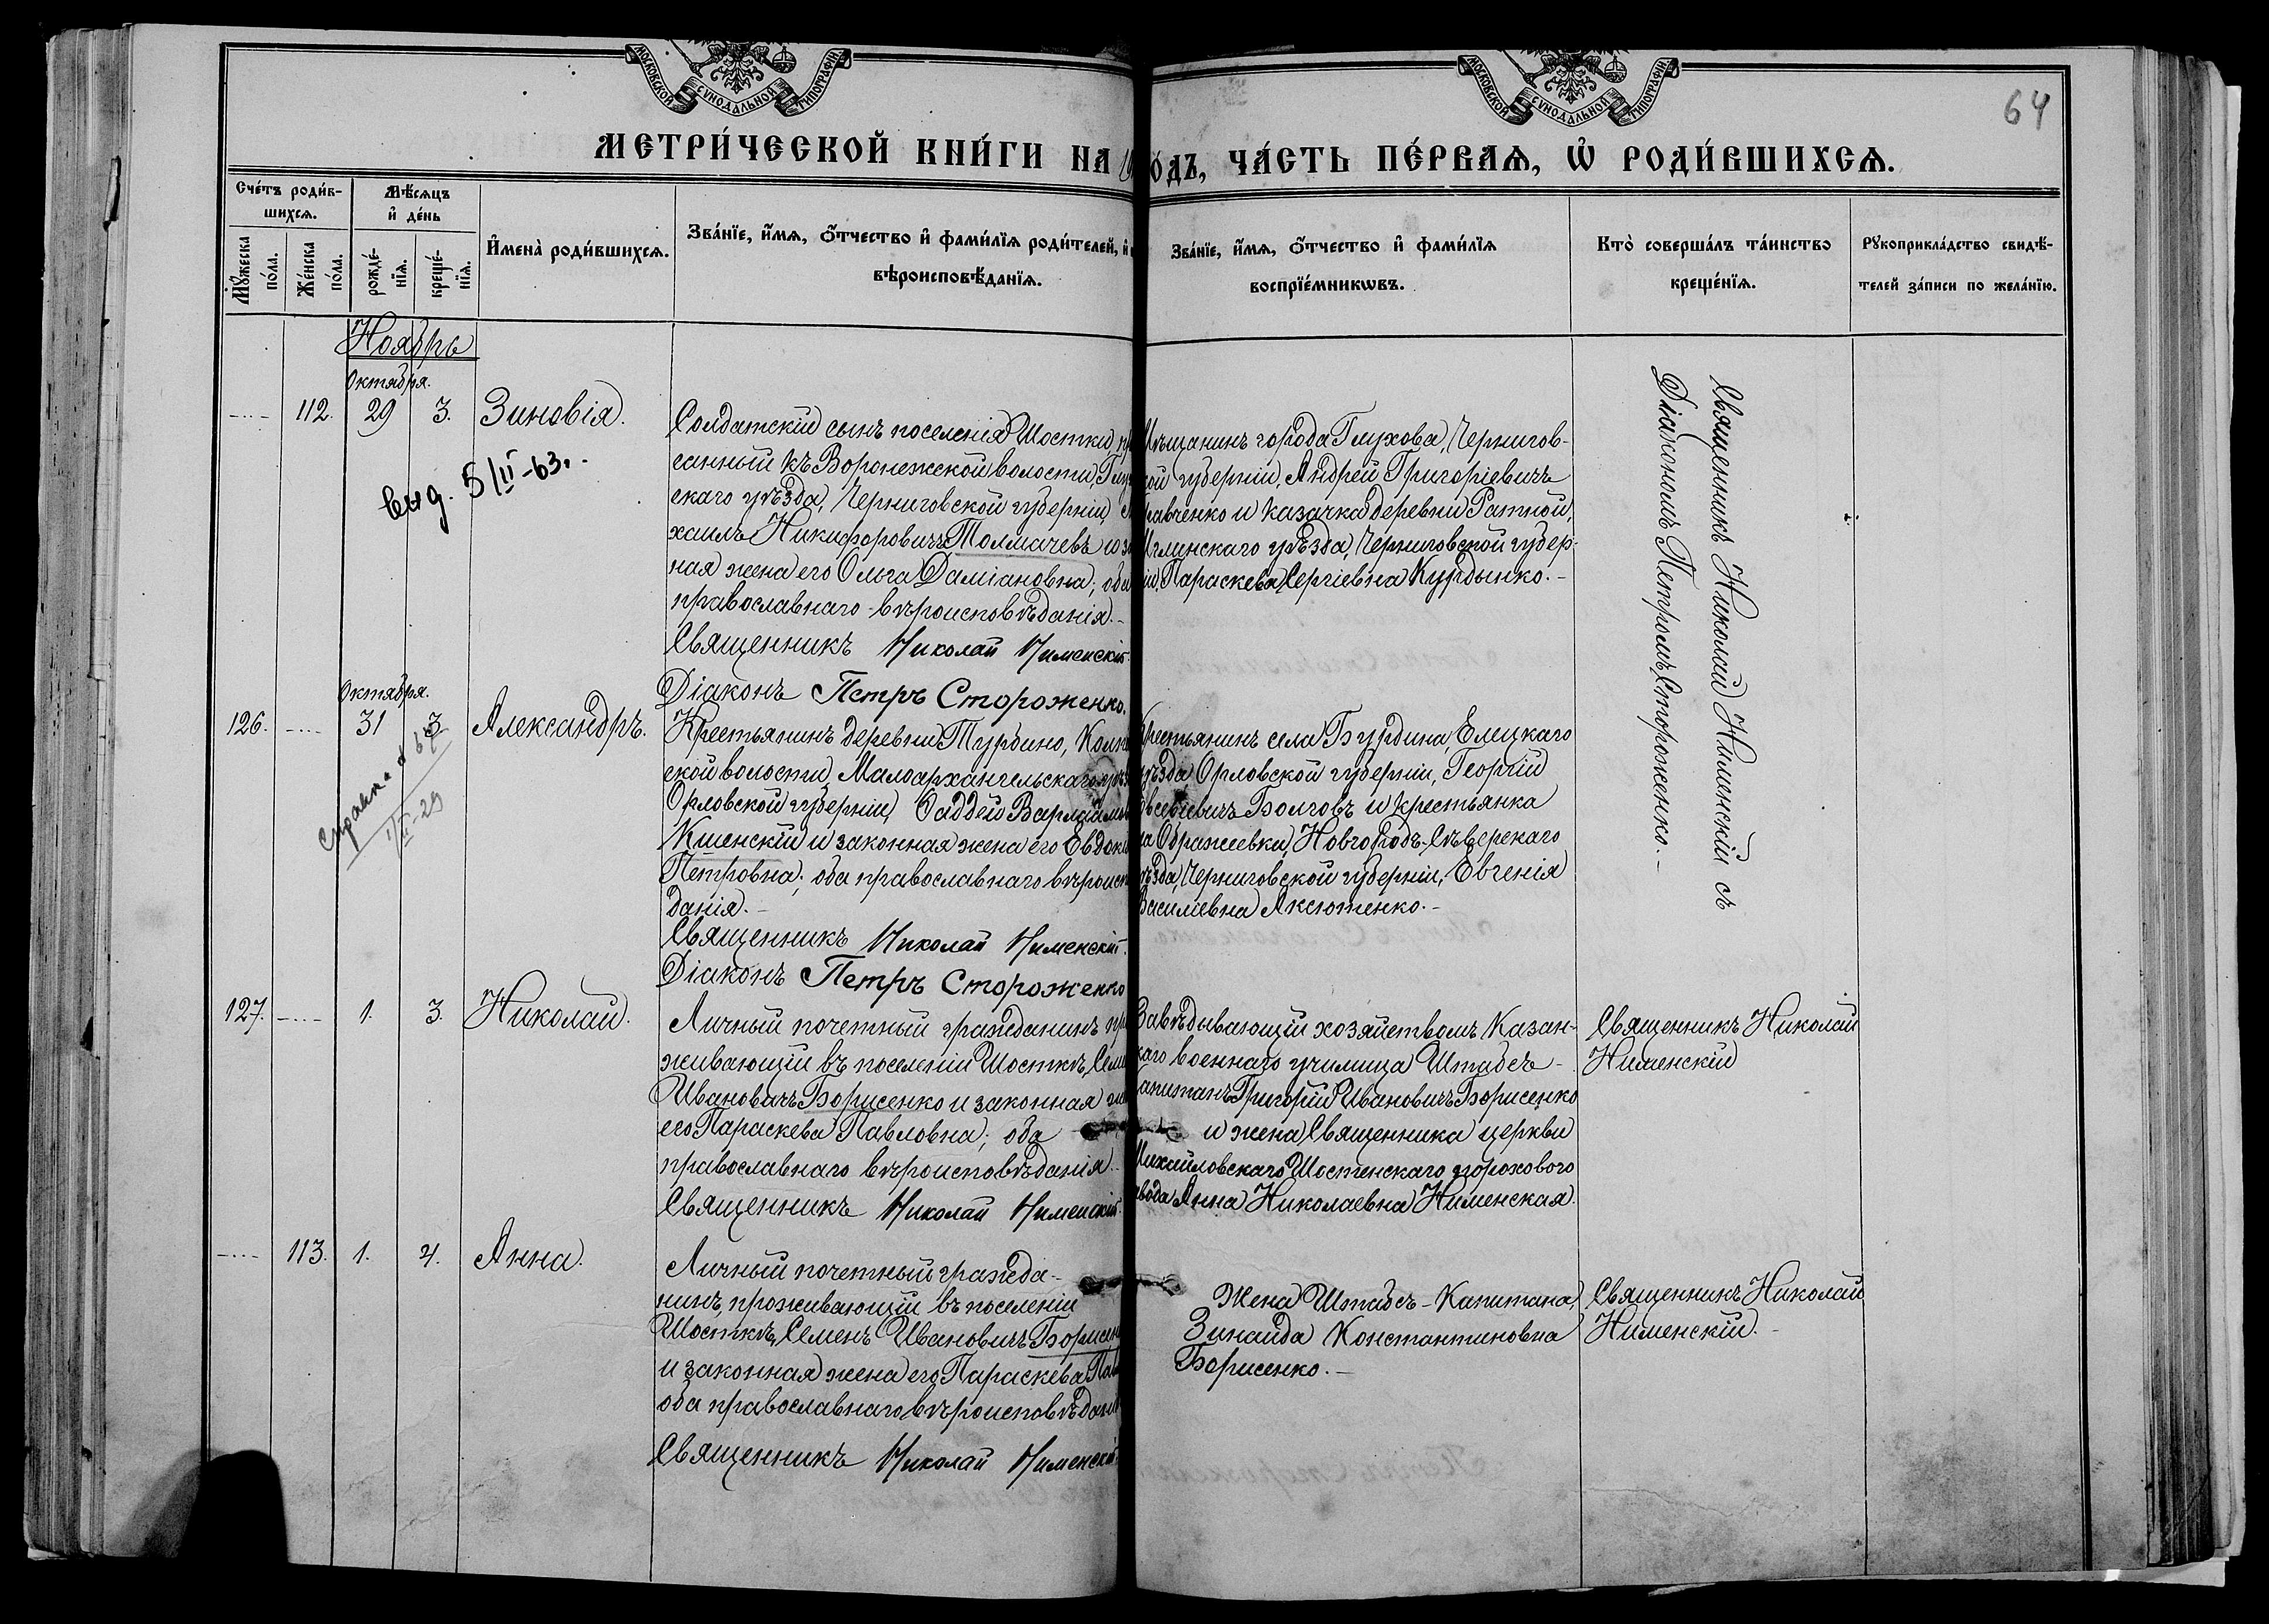 МОСКОВСКОЙ СѴНОДАЛЬНОЙ ТИПОГРАФІИ
МОСКОВСКОЙ СѴНОДАЛЬНОЙ ТИПОГРАФІИ
64
МЕТРИ́ЧЕСКОЙ КНИ́ГИ НА
О́ДЪ, ЧА́СТЬ ПЕ́РВАѦ, Ѡ҆ РОДИ́ВШИХСѦ.
Сче́тъ роди́в-
шихсѧ.
Мꙋ́жеска
по́ла.
Же́нска
по́ла.
Мѣ́сѧцъ
и҆ де́нь
рожде́-
нїѧ.
креще́-
нїѧ.
И҆мена̀ роди́вшихсѧ.
Зва́нїе, и҆́мѧ, ѻ҆́тчество и҆ фами́лїѧ роди́телей, и҆
вѣроисповѣ́данїѧ.
Зва́нїе, и҆́мѧ, ѻ҆́тчество и҆ фами́лїѧ
воспрїе́мникѡвъ.
Кто̀ соверша́лъ та́инство
креще́нїѧ.
Рꙋкоприкла́дство свидѣ́-
телей за́писи по жела́нїю.
Ноябрь
Октября.
112. 29 3. Зиновія.
Солдатскій сынъ поселенія Шостки, пр
санный къ Воронежской волости, Глу
скаго уѣзда, Черниговской губерніи, М
хаилъ Никифоровичъ Толмачевъ и за
ная жена его Ольга Даміановна; оба
православнаго вѣроисповѣданія.-
Священникъ Николай Нименскій.
Діаконъ Петръ Стороженко.
Мѣщанинъ города Глухова, Чернигов-
кой губерніи, Андрей Григоріевичъ
равченко и казачка деревни Ратной,
Мглинскаго уѣзда, Черниговской губер-
іи, Параскева Сергіевна Курдынко.-
Священникъ Николай Нименскій съ
Діакономъ Петромъ Стороженко.-
выд. 5/II-63.
Октября.
126. 31 3 Александръ.
Справка № 64
1/II-29
Крестьянинъ деревни Турдино, Колп
ской волости, Малоархангельскаго уѣз
Орловской губерніи, Ѳаддей Варлаам
Кшенскій и законная жена его Евдок
Петровна; оба православнаго вѣроисп
данія.-
Священникъ Николай Нименскій.
Діаконъ Петръ Стороженко
Крестьянинъ села Бурдина, Елецкаго
уѣзда Орловской губерніи, Георгій
Евсевіевичъ Болговъ и крестьянка
ла Ображеевки, Новгородъ-Сѣверскаго
уѣзда, Черниговской губерніи, Евгенія
Василіевна Аксютенко.-
127. 1. 3. Николай.
Личный почетный гражданинъ пр
живающій въ поселеніи Шосткѣ, Семе
Ивановичъ Борисенко и законная же
его Параскева Павловна; оба
православнаго вѣроисповѣданія.-
Священникъ Николай Нименскій.
Завѣдывающій хозяйствомъ Казан-
скаго военнаго училища Штабсъ-
апитанъ Григорій Ивановичъ Борисенко
и жена Священника церкви
Михайловскаго Шостенскаго порохового
вода Анна Николаевна Нименская.
Священникъ Николай
Нименскій
113. 1. 4. Анна.
Личный почетный гражда-
нинъ, проживающій въ поселеніи
Шосткѣ, Семенъ Ивановичъ Борисен
и законная жена его Параскева Пав
оба православнаго вѣроисповѣданія
Священникъ Николай Нименскій
Жена Штабсъ-Капитана,
Зинаида Константиновна
Борисенко.-
Священникъ Николай
Нименскій.-